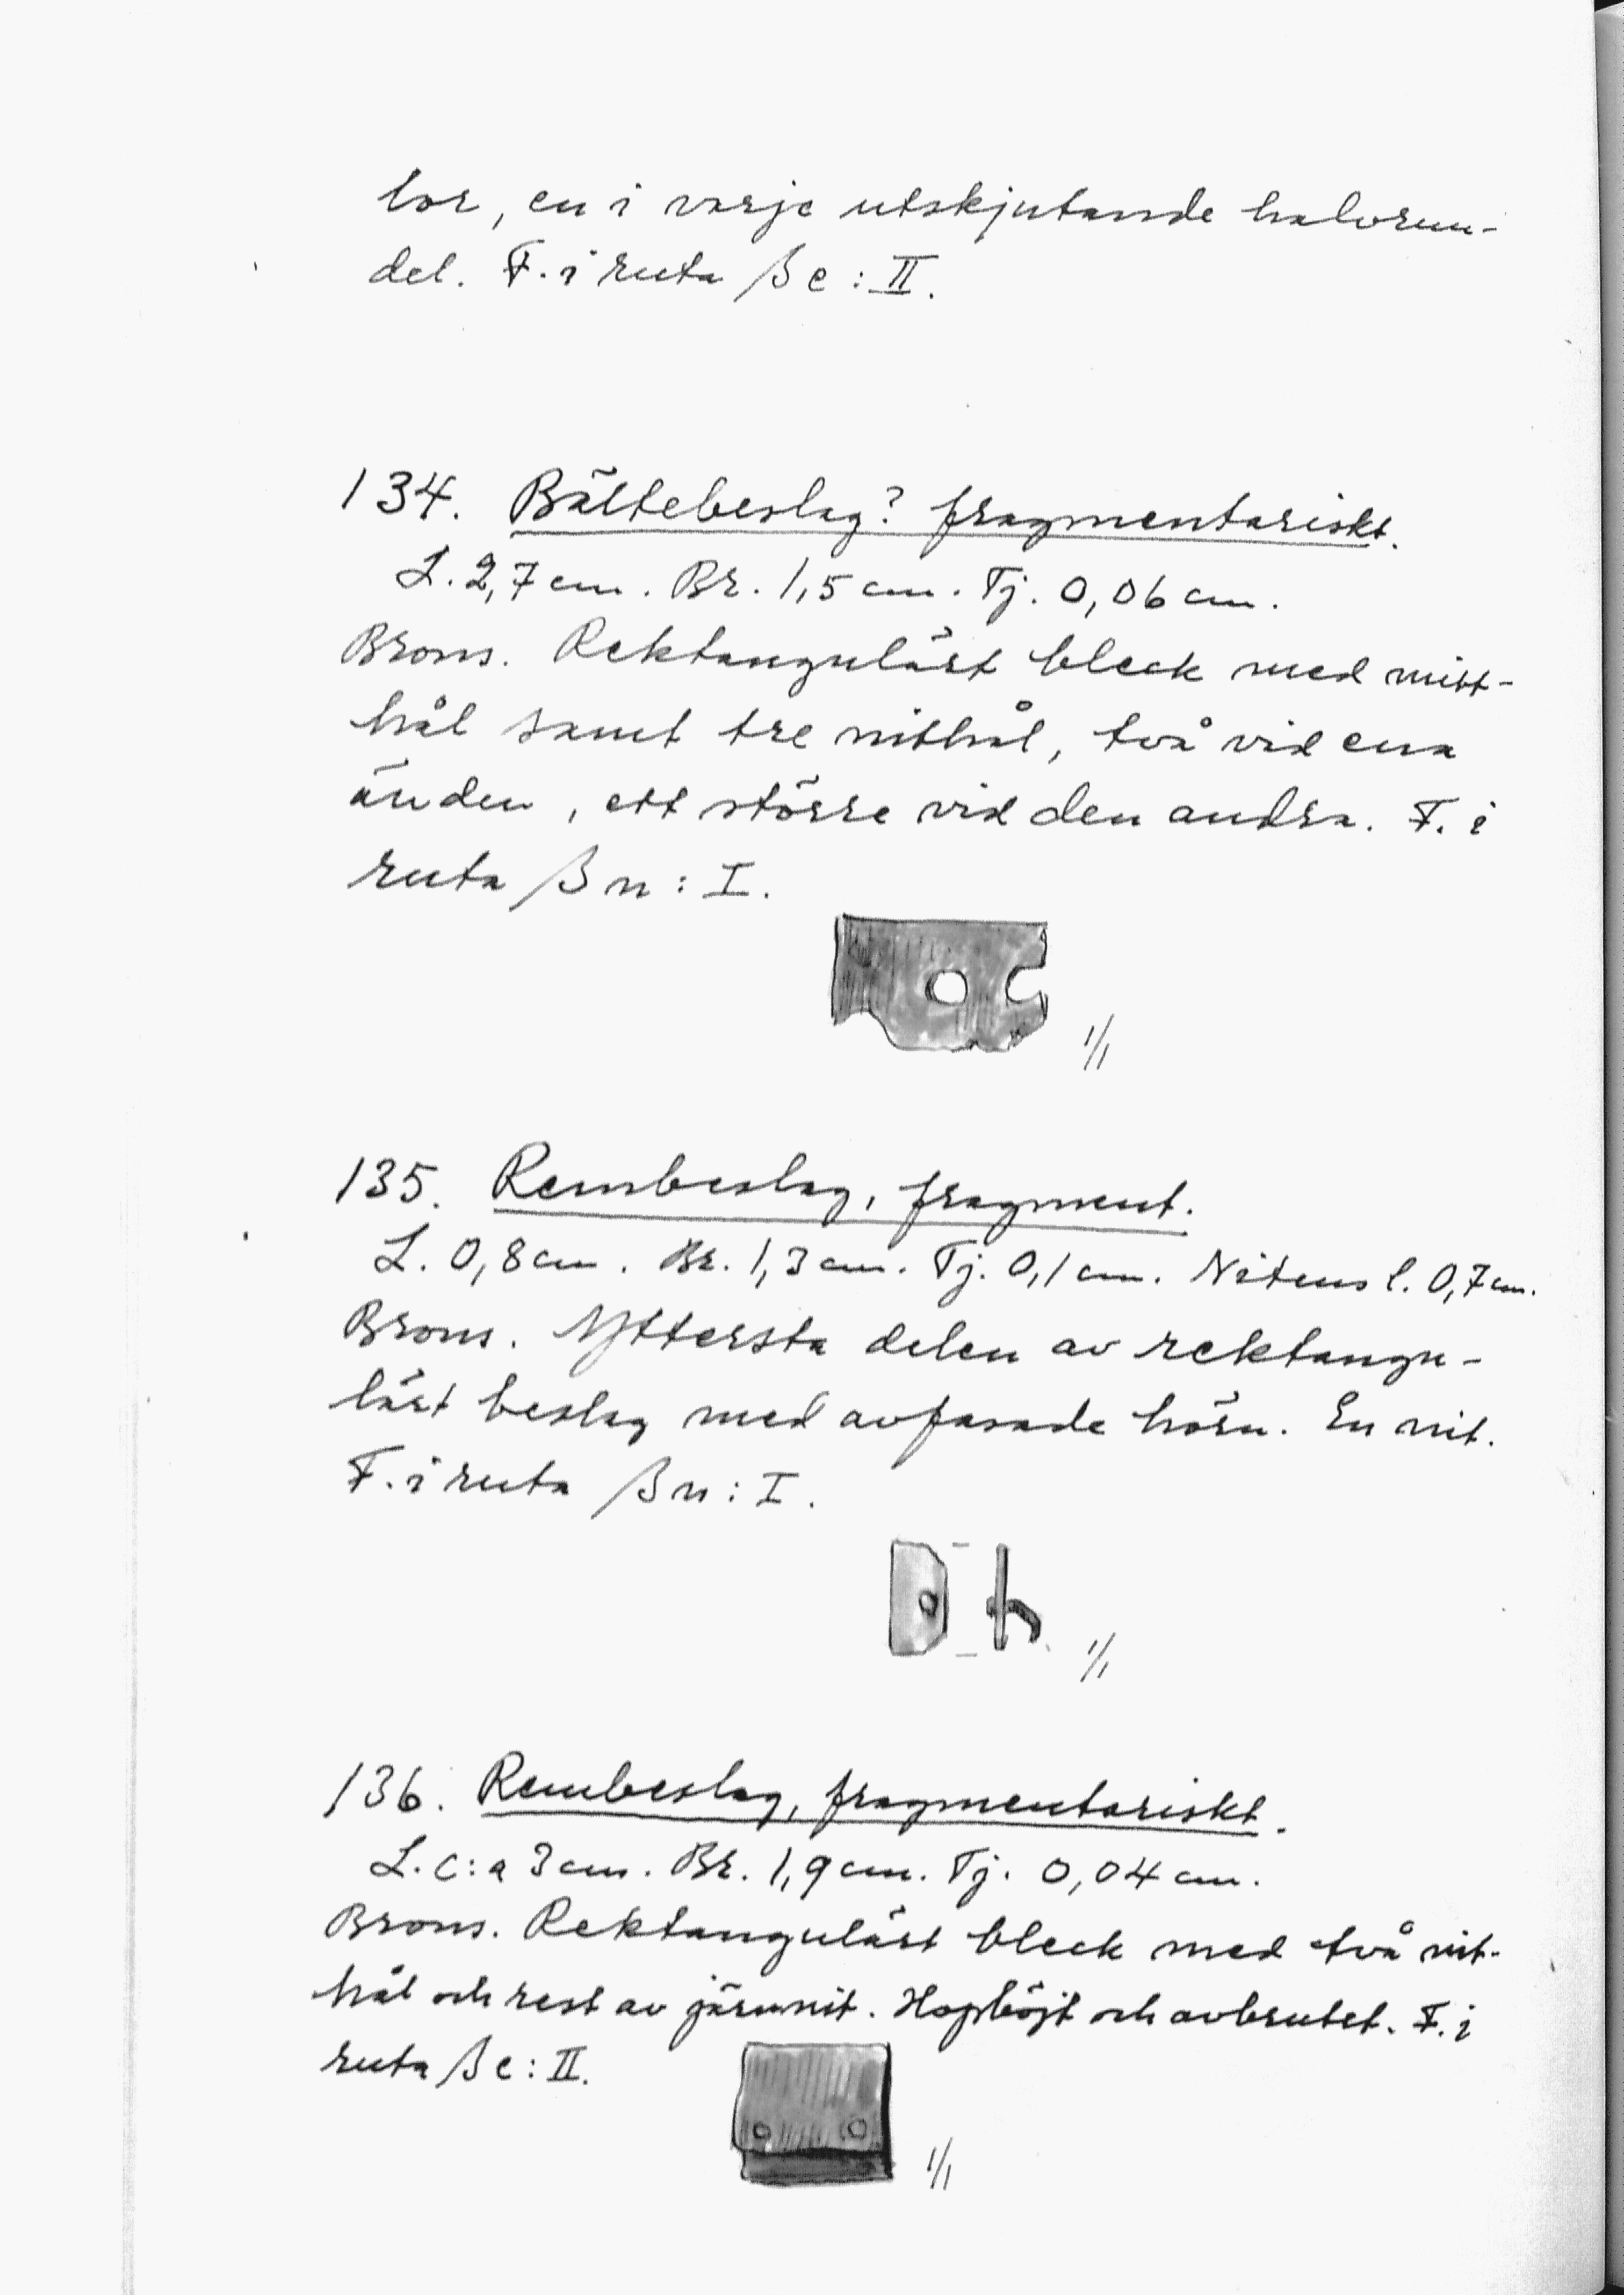 lor, en i varje utskjutande halvrun-
del. F. i ruta βe: II.
134. Bältebeslag? fragmentariskt.
L. 2,7 cm. Br. 1,5 cm. Tj. 0,06 cm.
Brons. Rektangulärt bleck med mitt-
hål samt tre nithål, två vid ena
änden, ett större vid den andra. F. i
ruta βn: I.
1/1
135. Rembeslag, fragment.
L. 0,8 cm. Br. 1,3 cm. Tj. 0,1 cm. Nitens l. 0,7 cm.
Brons. Yttersta delen av rektangu-
lärt beslag med avfasade hörn. En nit.
F. i ruta βn: I.
1/1
136. Rembeslag, fragmentariskt.
L. c:a 3 cm. Br. 1,9 cm. Tj. 0,04 cm.
Brons. Rektangulärt bleck med två nit-
hål och rest av järnnit. Hopböjt och avbrutet. F. i
ruta βe: II.
1/1